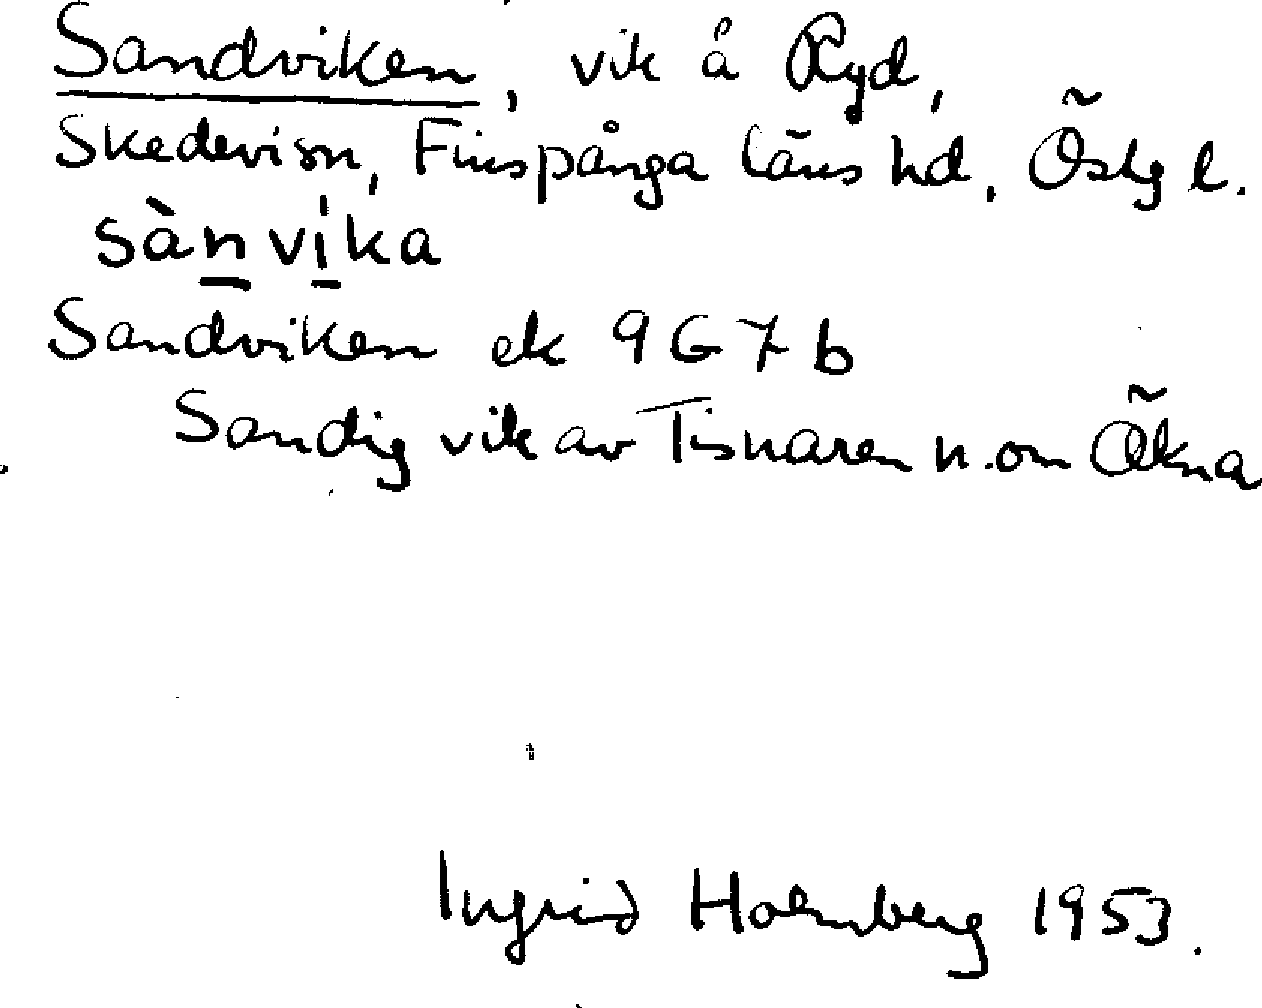 Sandviken, vik å Ryd,
Skedevi sn, Finspånga läns hd, Östg l.
sànvika
Sandviken ek 9G7b
Sandig vik av Tisnaren n. om Ökna
Ingrid Holmberg 1953.